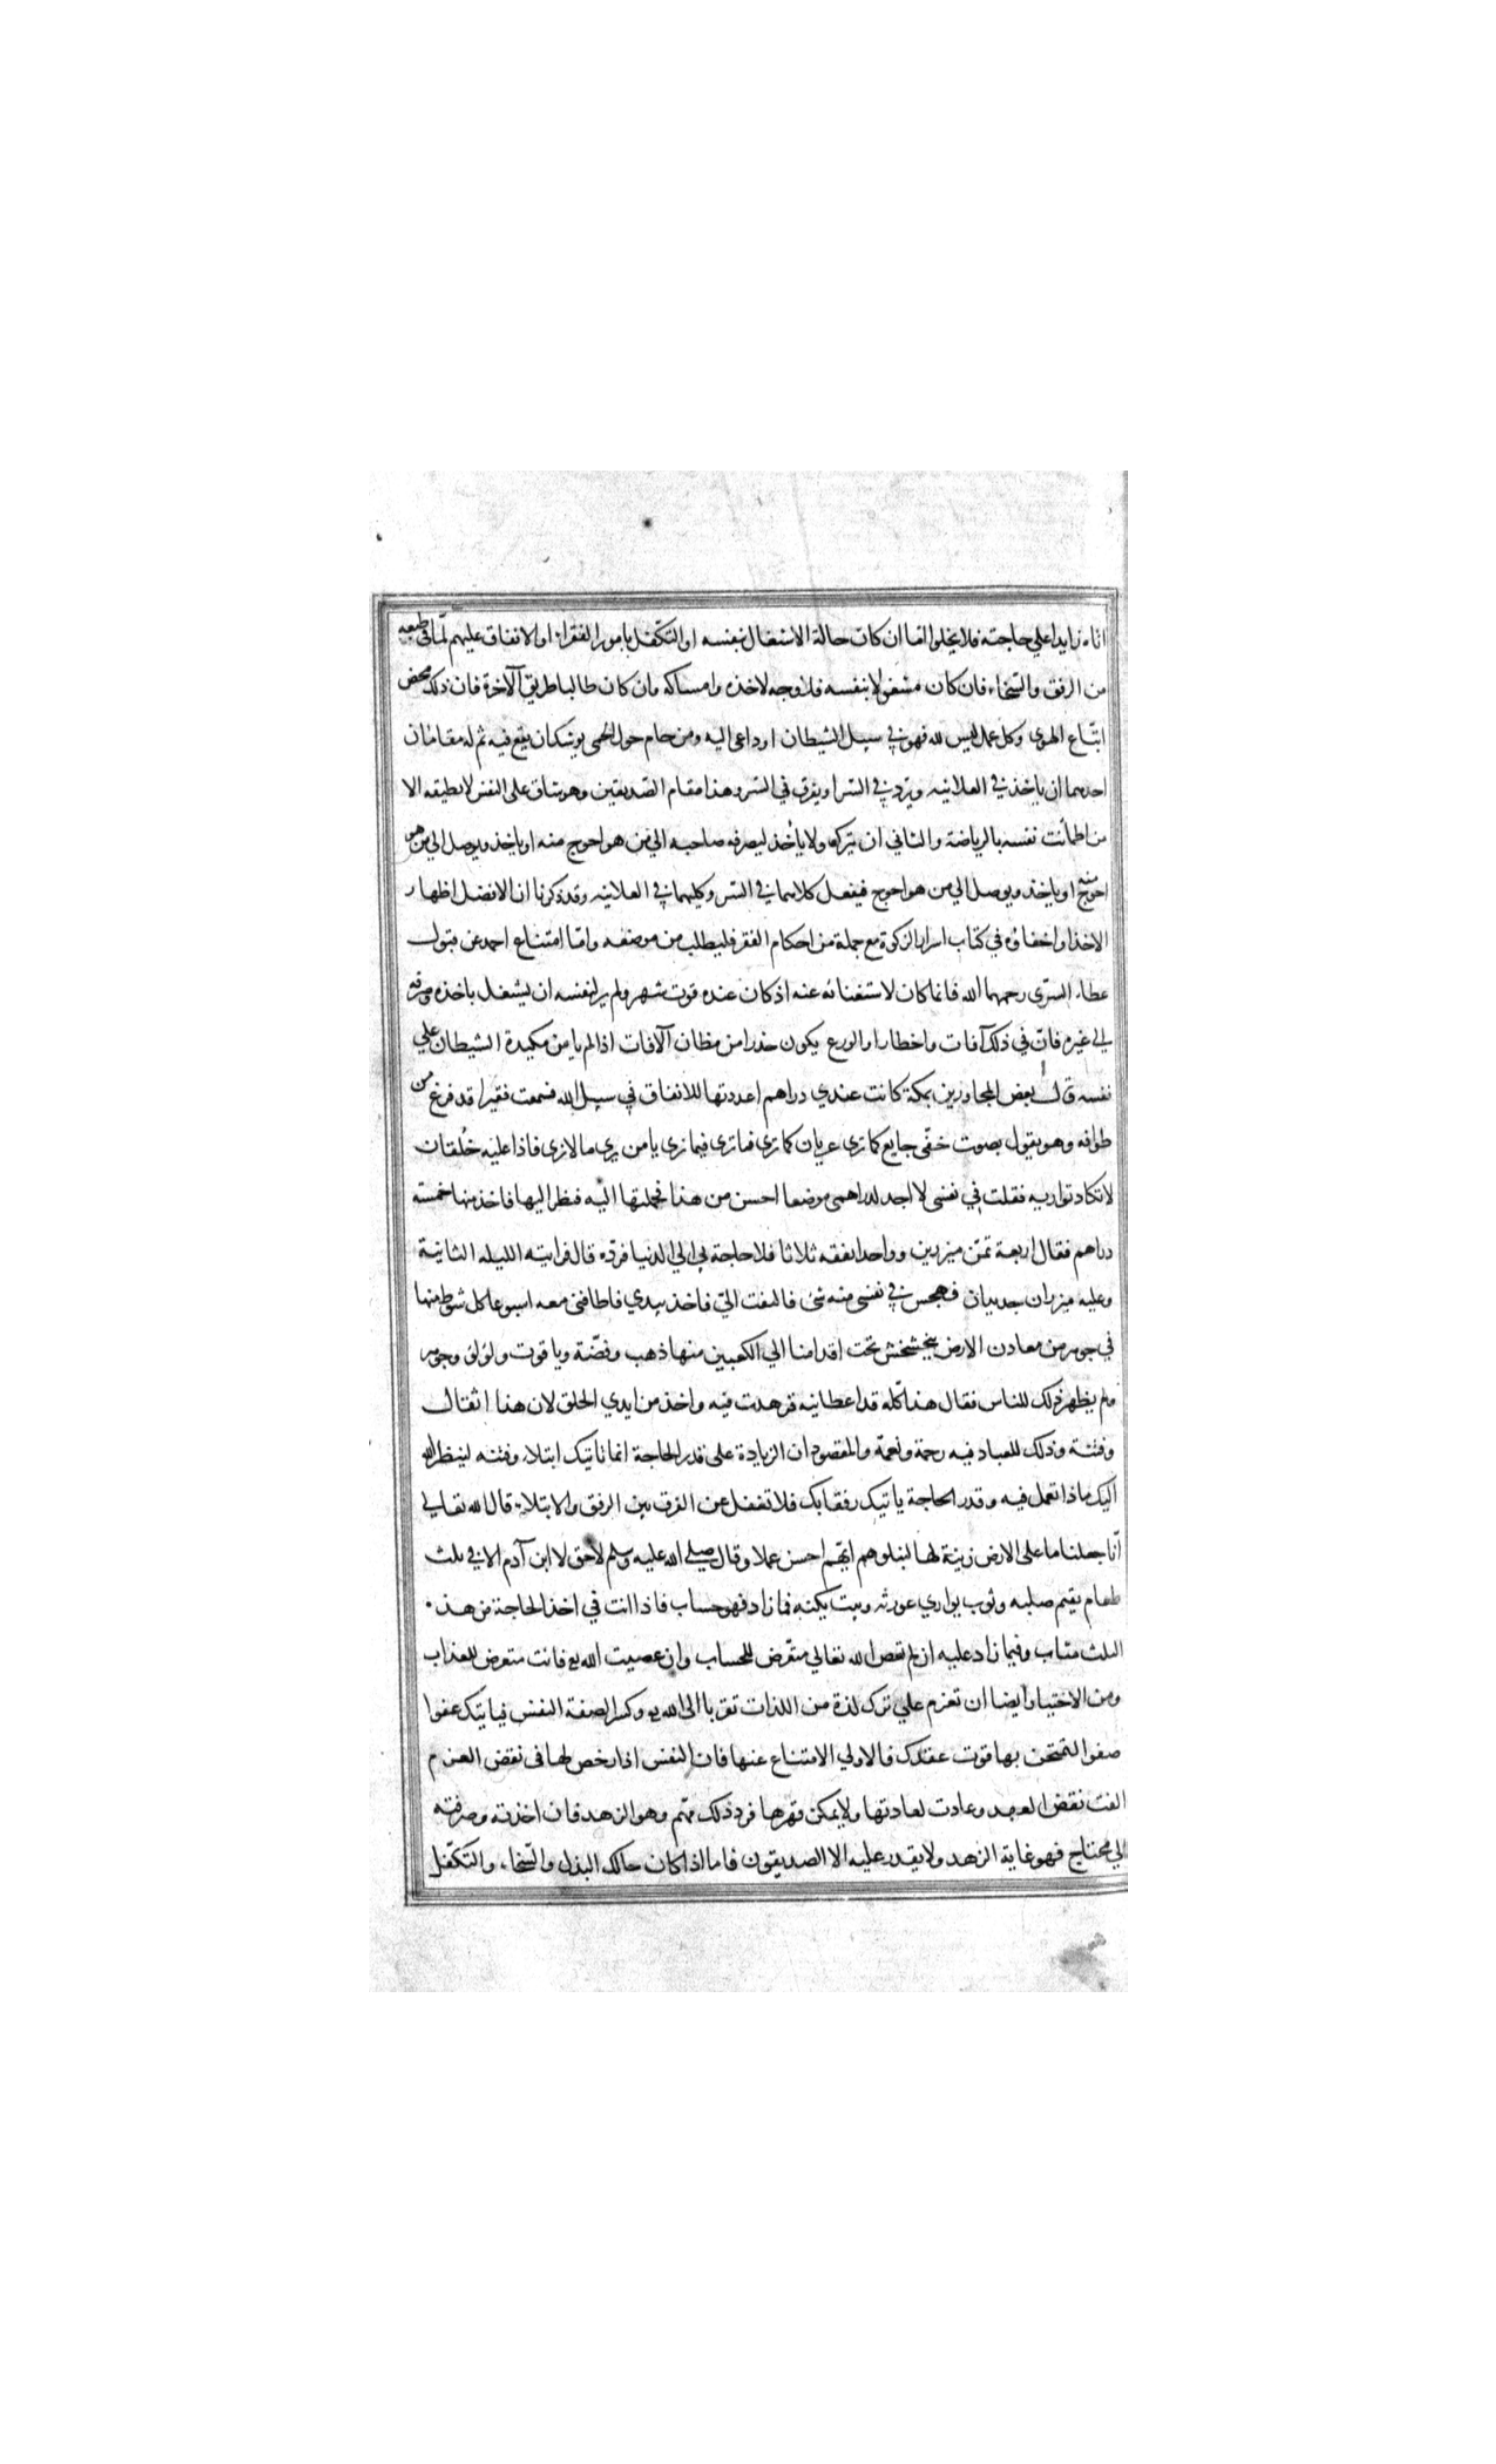 اتاه زايدا علي حاجته فلا يخلوا اما ان كان حالة الاشتغال بنفسه او التكفل بامور الفقراء او الانفاق عليهم لما في طبعه
من الرفق والسخاء فان كان مشغولا بنفسه فلا وجه لاخذه وامساكه وان كان طالبا طريق الآخرة فان ذلك محض
اتباع الهوي وكل عمل ليس لله فهو في سبيل الشيطان او داعي اليه ومن حام حول الحمي يوشك ان يقع فيه ثم له مقامان
احدهما ان ياخذ في العلانيه ويرد في السر او يفرق في السر وهذا مقام الصديقين وهو شاق علي النفس لا يطيقه الا
من اطمأنت نفسه بالرياضة والثاني ان يتركه ولا يأخذ ليصرفه صاحبه الي من هو احوج منه او ياخذ ويوصل الي من هو
احوج منه او ياخذ ويوصل الي من هو احوج فيفعل كلاهما في السر وكليهما في العلانيه وقد ذكرنا ان الافضل اظهار
الاخذ او اخفاؤه في كتاب اسرار الزكوة مع جملة من احكام الفقر فليطلب من موضعه واما امتناع احمد عن قبول
عطاء السري رحمهما الله فانما كان لاستغنائه عنه اذ كان عنده قوت شهر ولم ير لنفسه ان يشغل باخذه وصرفه
الي غيره فان في ذلك آفات واخطارا والورع يكون حذرا من مظان الآفات اذا لم يامن مكيدة الشيطان علي
نفسه قال بعض المجاورين بمكة كانت عندي دراهم اعددتها للانفاق في سبيل الله فسمعت فقيرا قد فرغ من
طوافه وهو يقول بصوت خفي جايع كما تري عريان كما تري فما تري فيما تري يا من يري ما لا نري فاذا عليه خلقان
لا تكاد تواريه فقلت في نفسي لا اجد لدراهمي موضعا احسن من هذا فحملتها اليه فنظر اليها فاخذ منها خمسة
دراهم فقال اربعة ثمن ميزرين وواحد انفقه ثلاثا فلا حاجة بي الي الدنيا فرده قال فرايته الليله الثانية
وعليه ميزران جديدان فهجس في نفسي منه شئ فالتفت الي فاخذ بيدي فاطافني معه اسبوعا كل شوط منها
في جوهر من معادن الارض يتخشخش تحت اقدامنا الي الكعبين منها ذهب وفضة وياقوت ولؤلؤ وجوهر
ولم يظهر ذلك للناس فقال هذا كله قد اعطانيه فزهدت فيه واخذ من ايدي الخلق لان هذا اثقال
وفتنة وذلك للعباد فيه رحمة ونعمة والمقصود ان الزيادة علي قدر الحاجة انما تاتيك ابتلاء وفتنه لينظر الله
اليك ماذا تعمل فيه وقدر الحاجة ياتيك رفقا بك فلا تغفل عن الفرق بين الرفق والابتلاء قال الله تعالي
انا جعلنا ما علي الارض زينة لها لنبلوهم ايهم احسن عملا وقال صلي الله عليه وسلم لا حق لابن آدم الا في ثلث
طعام يقيم صلبه وثوب يواري عورته وبيت يكنه فما زاد فهو حساب فاذا انت في اخذ الحاجة من هذه
الثلث مثاب وفيما زاد عليه ان لم تعص الله تعالي متعرض للحساب وان عصيت الله فانت متعرض للعذاب
ومن الاختيار ايضا ان تعزم علي ترك لذة من اللذات تقربا الي الله وكسرا لصفة النفس فياتيك عفوا
صفوا لتمتحن بها قوت عقلك فالاولي الامتناع عنها فان النفس اذا رخص لها في نقض العزم
الفت نقض العهد وعادت لعادتها ولا يمكن قهرها فرد ذلك مهم وهو الزهد فان اخذته وصرفته
الي محتاج فهو غاية الزهد ولا يقدر عليه الا الصديقون فاما اذا كان حالك البذل والسخاء والتكفل